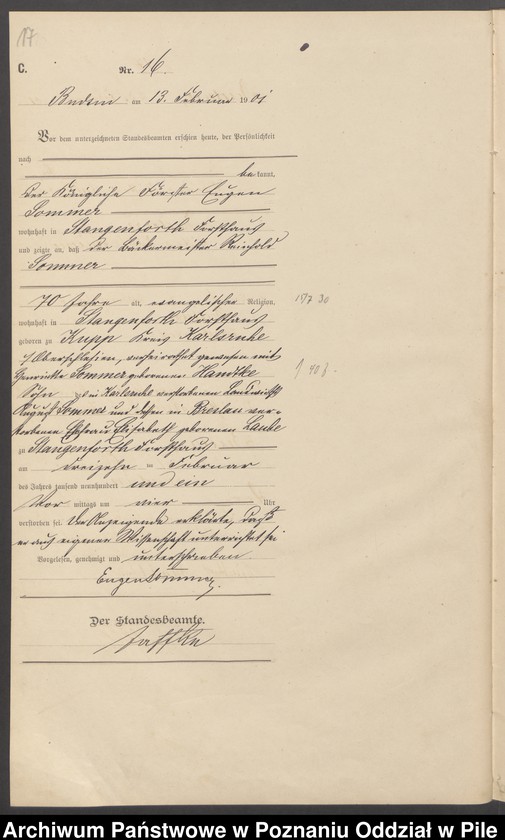 17
C. Nr. 16.
Budsin am 13. Februar 1901
Vor dem unterzeichneten Standesbeamten erschien heute, der Persönlichkeit
nach
bekannt,
der Königliche Förster Eugen
Sommer
wohnhaft in Stangenforth Forsthaus
und zeigte an, daß der Bäckermeister Reinhold
Sommer
70 Jahre alt, evangelischer Religion,
wohnhaft in Stangenforth Forsthaus
geboren zu Kupp Kreis Karlsruhe
Oberschlesien, verheirathet gewesen mit
Henriette Sommer geborenen Handtke
Sohn des in Karlsruhe verstorbenen
August Sommer und dessen in Breslau ver-
storbenen Ehefrau Elisabeth geborenen
zu Stangenforth Forsthaus
am dreizehn ten Februar
des Jahres tausend neunhundert und ein
Vor mittags um vier Uhr
verstorben sei. Der Anzeigende erklärte, daß
er aus eigener Wissenschaft unterrichtet sei
Vorgelesen, genehmigt und unterschrieben
Eugen Sommer
Der Standesbeamte.
Archiwum Państwowe w Poznaniu Oddział w Pile